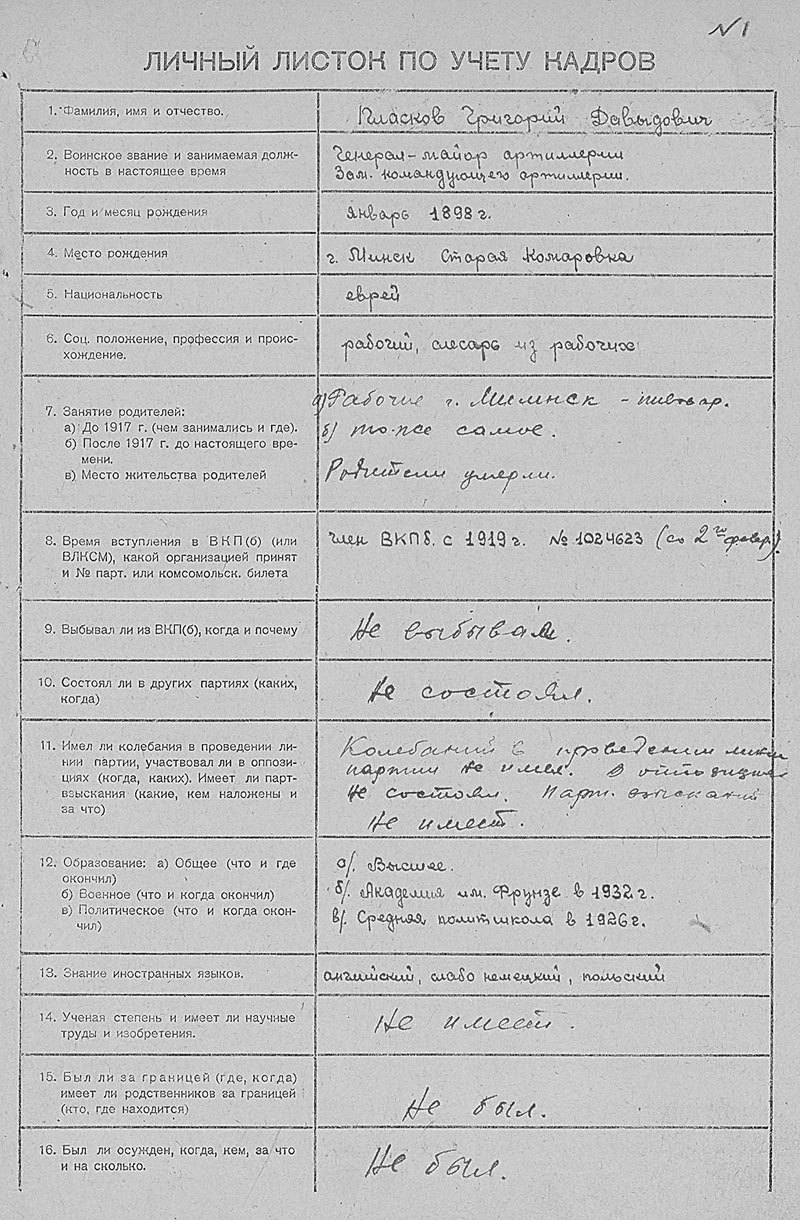 N 1
ЛИЧНЫЙ ЛИСТОК ПО УЧЕТУ КАДРОВ
1. Фамилия, имя и отчество.
Пласков Григорий Давыдович
2. Воинское звание и занимаемая долж-
ность в настоящее время
Генерал-майор артиллерии
Зам. командующего артиллерии.
3. Год и месяц рождения
январь 1898 г.
4. Место рождения
г. Минск Старая Комаровка
5. Национальность
еврей
6. Соц. положение, профессия и проис-
хождение.
рабочий, слесарь из рабочих
7. Занятие родителей:
а) До 1917 г. (чем занимались и где).
б) После 1917 г. до настоящего вре-
мени.
в) Место жительства родителей
а) Рабочие г.
б) то-же самое.
Родители умерли.
8. Время вступления в ВКП(б) (или
ВЛКСМ), какой организацией принят
и № парт. или комсомольск. билета
член ВКПб. с 1919 г. № 1024623 (со 2го февр.)
9. Выбывал ли из ВКП(б), когда и почему
Не выбывал.
10. Состоял ли в других партиях (каких,
когда)
Не состоял.
11. Имел ли колебания в проведении ли-
нии партии, участвовал ли в оппози-
циях (когда, каких). Имеет ли парт-
взыскания (какие, кем наложены и
за что)
Колебаний в проведении линии
партии не имел. В оппозициях
не состоял. Парт. взысканий
не имеет.
12. Образование: а) Общее (что и где
окончил)
б) Военное (что и когда окончил)
в) Политическое (что и когда окон-
чил)
а/. Высшее.
б/. Академия им. Фрунзе в 1932 г.
в/. Средняя политшкола в 1926 г.
13. Знание иностранных языков.
английский, слабо немецкий, польский
14. Ученая степень и имеет ли научные
труды и изобретения.
Не имеет.
15. Был ли за границей (где, когда)
имеет ли родственников за границей
(кто, где находится)
Не был.
16. Был ли осужден, когда, кем, за что
и на сколько.
Не был.